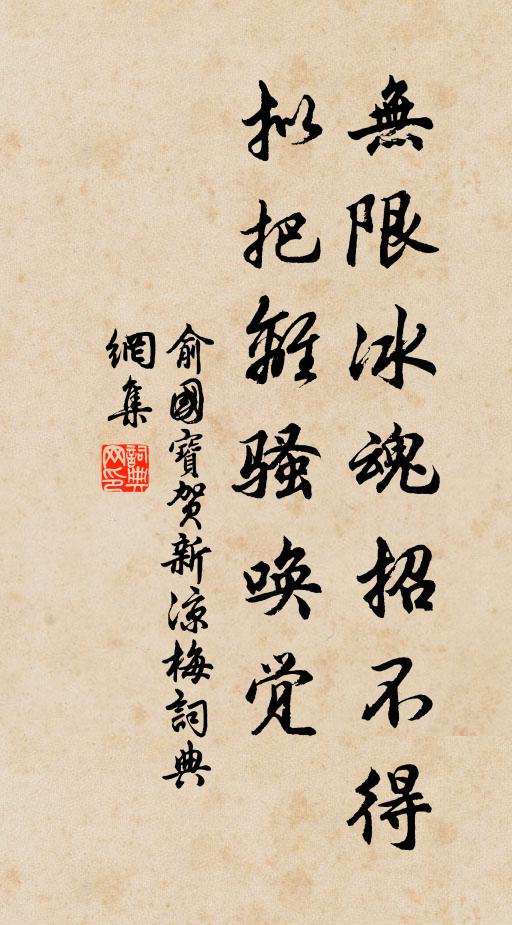 無限冰魂招不得
拟把離骚唤觉
俞國寶贺新涼梅詞典
網集
詞典
网印